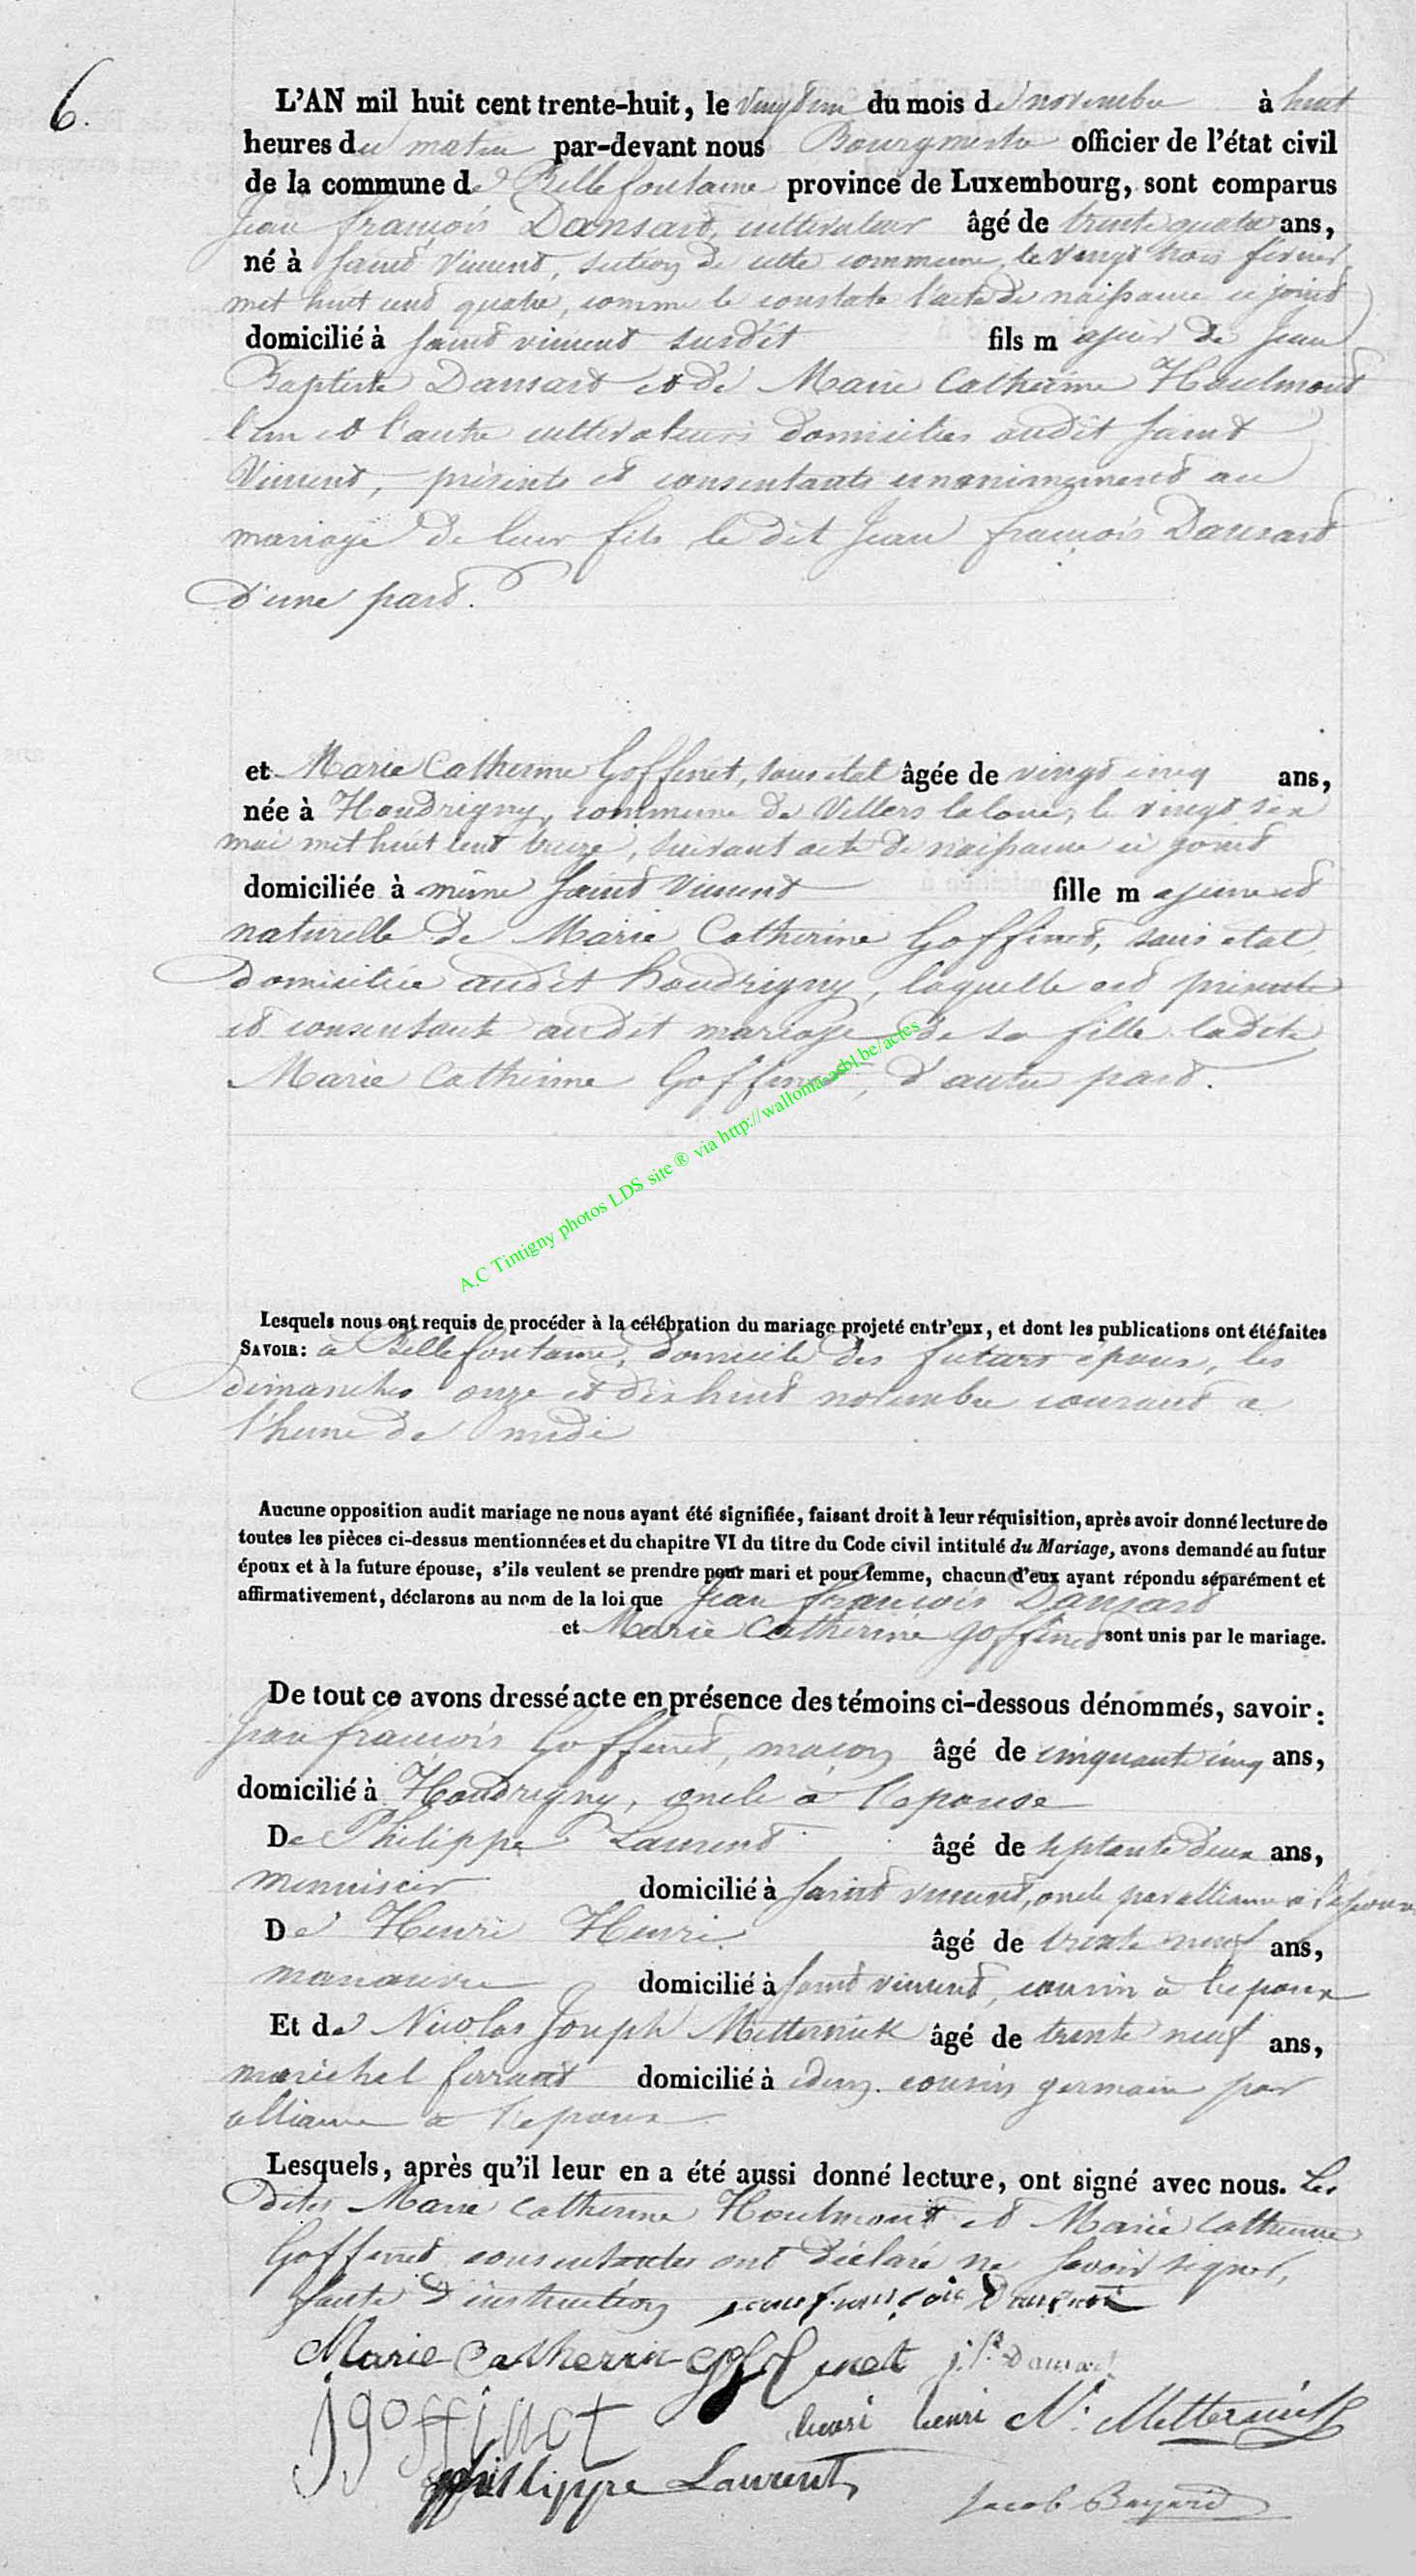 6.
L'AN mil huit cent trente-huit, le vingt un du mois de novembre à huit
heures du matin par-devant nous Bourgmestre officier de l'état civil
de la commune de Bellefontaine province de Luxembourg, sont comparus
Jean françois Dansart, cultivateur âgé de trente quatre ans,
né à Saint Vincent, section de cette commune, le vingt trois février
mil huit cent quatre, comme le constate l'acte de naissance ci joint
domicilié à Saint vincent susdit fils m ajeur de Jean
Baptiste Dansart et de Marie Catherine Houlmont
l'un et l'autre cultivateurs domiciliés audit Saint
Vincent, présents et consentants unanimement au
mariage de leur fils le dit Jean françois Dansart
d'une part.
et Marie Catherine Goffinet, sans état âgée de vingt cinq ans,
née à Houdrigny, commune de Villers la loue, le vingt six
mai mil huit cent treize, suivant acte de naissance ci joint
domiciliée à même Saint Vincent fille m ajeure et
naturelle de Marie Catherine Goffinet, sans état
domiciliée audit houdrigny, laquelle est présente
et consentante audit mariage de sa fille ladite
Marie Catherine Goffinet, d'autre part.
A.C Tintigny photos LDS site ® via http://wallonia-asbl.be/actes
Lesquels nous ont requis de procéder à la célébration du mariage projeté entr'eux, et dont les publications ont été faites
SAVOIR: à Bellefontaine, domicile des futurs époux, les
dimanches onze et dix huit novembre courant a
l'heure de midi
Aucune opposition audit mariage ne nous ayant été signifiée, faisant droit à leur réquisition, après avoir donné lecture de
toutes les pièces ci-dessus mentionnées et du chapitre VI du titre du Code civil intitulé du Mariage, avons demandé au futur
époux et à la future épouse, s'ils veulent se prendre pour mari et pour femme, chacun d'eux ayant répondu séparément et
affirmativement, déclarons au nom de la loi que Jean françois Dansart
et Marie Catherine goffinet sont unis par le mariage.
De tout ce avons dressé acte en présence des témoins ci-dessous dénommés, savoir:
Jean françois Goffinet, maçon âgé de cinquante cinq ans,
domicilié à Houdrigny, oncle a l'epouse
De Philippe Laurent âgé de septante deux ans,
menuisier domicilié à Saint vincent, oncle par alliance a l'epoux
De Henri Henri âgé de trente neuf ans,
manoeuvre domicilié à Saint vincent, cousin a l'epoux
Et de Nicolas Joseph Metternick âgé de trente neuf ans,
maréchal ferrant domicilié à idem. cousin germain par
alliance a l'epoux
Lesquels, après qu'il leur en a été aussi donné lecture, ont signé avec nous. Les
dites Marie Catherine Houlmont et Marie Catherine
Goffinet consentantes ont déclaré ne savoir signer,
faute d'instruction jean françois Dansart
Marie Catherin Goffinet j. Bte Dansart
j goffinet henri henri N. Metternick
philippe Laurent
Jacob Bayard